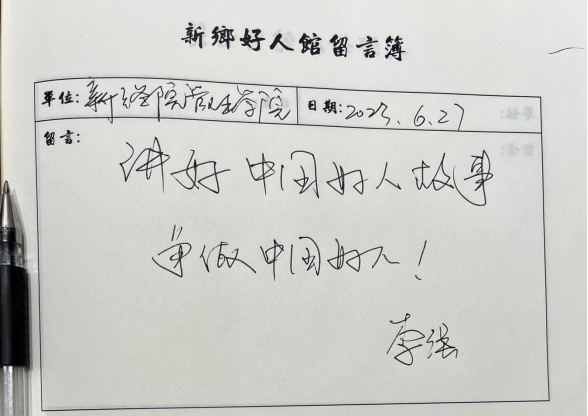 新鄉好人館留言簿
單位：新乡学院管理学院 日期：2023.6.27
留言：
讲好中国好人故事
争做中国好人！
李强